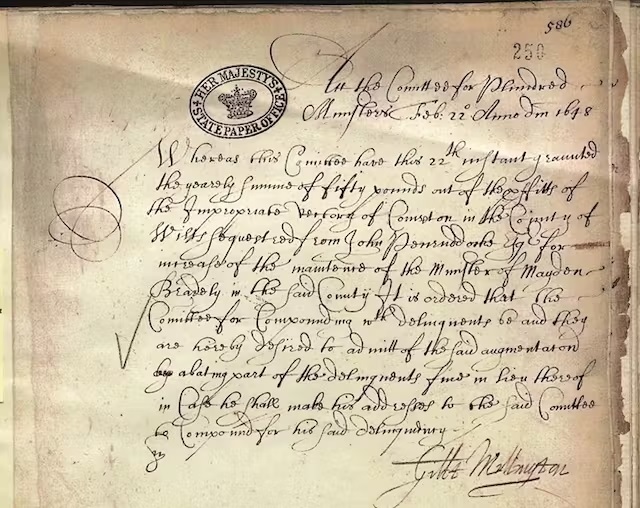 586
250
HER MAJESTY'S
STATE PAPER OFFICE
Att the Comittee for Plundred
Ministers Feb: 22º Anno dni 1648
Whereas this Comittee have this 22th instant graunted
the yearely summe of fifty pounds out of the pffitts of
the Impropriate Rectory of Compton in the County of
Wilts sequestred from John Penruddocke Esq for
increase of the maintenence of the Minister of Mayden
Bradely in the said County It is ordered that the
Comittee for Compounding wth delinquents be and they
are hereby desired to admitt of the said augmentacon
by abating part of the delinquents fine in lieu thereof
in Case he shall make his addresses to the said Comittee
to Compound for his said delinquency
Gilbt Millington